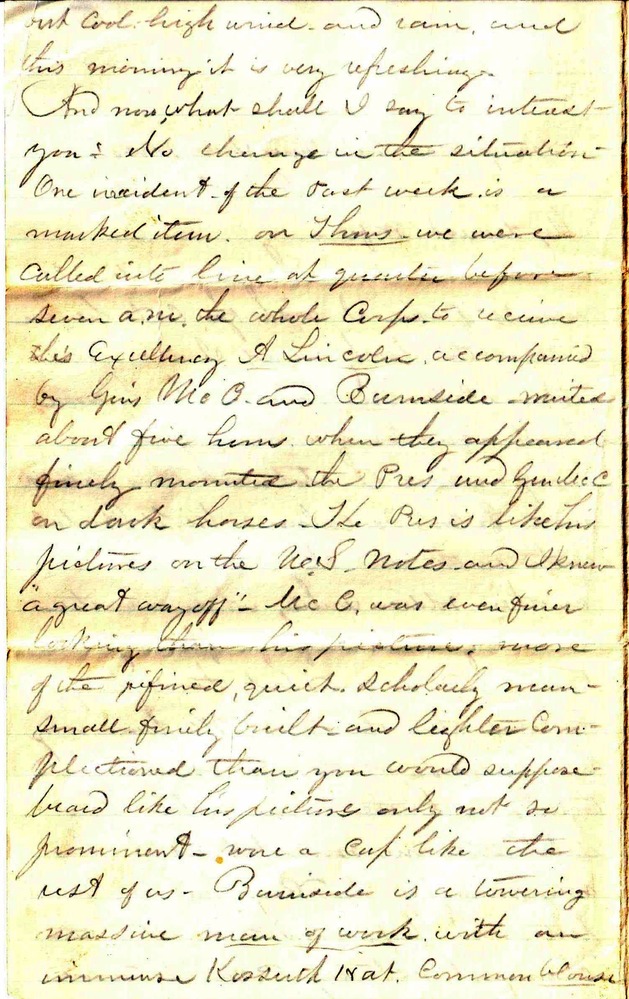 but cool. high wind. and rain, and
this morning it is very refreshing.
And now what shall I say to interest
you? No change in the situation
One incident of the past week is a
marked item. on Thurs we were
called into line at quarter before
seven a.m. the whole Corps. to receive
his Excellency A Lincoln. accompanied
by Gens Mc C. and Burnside waited
about five hours when they appeared
finely mounted the Pres and Gen Mc C
on dark horses. The Pres is like his
pictures on the U.S. Notes and I knew
"a great way off" - Mc C. was even finer
looking than his picture. more
of the refined, quiet. scholarly man -
small finely built and lighter com-
plectioned than you would suppose
beard like his pictures only not so
prominent - wore a cap like the
rest of us - Burnside is a towering
massive man of work with an
immense Kossuth Hat. Common blouse